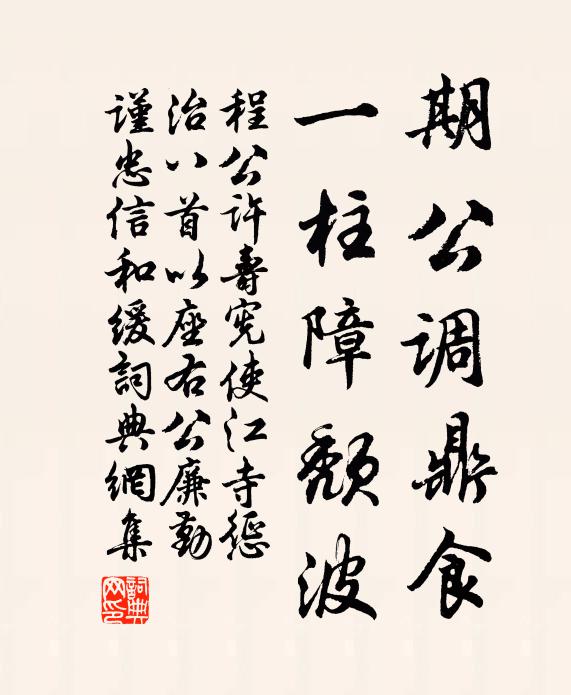 期公调鼎食
一柱障颓波
程公许寿宪使江寺丞
治八首以座右公廉勤
谨忠信和缓词典網集
詞典網印